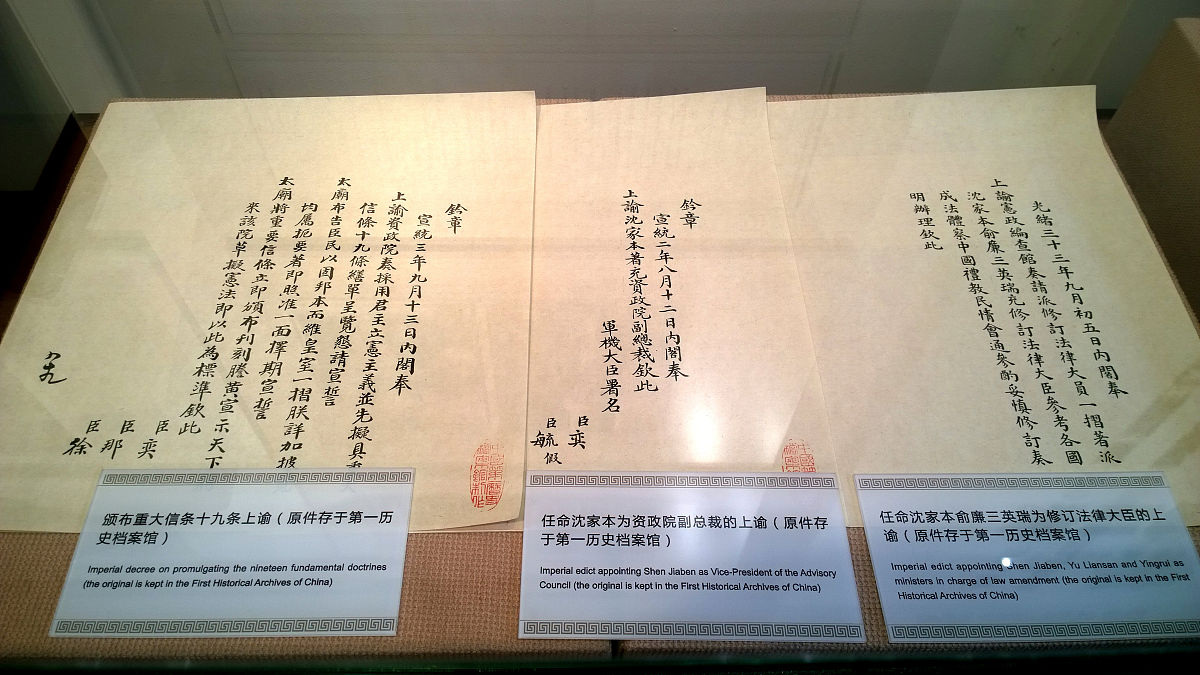 鈐章
宣統三年九月十三日內閣奉
上諭資政院奏採用君主立憲主義並先擬具
信條十九條繕單呈覽懇請宣誓
太廟布告臣民以固邦本而維皇室一摺朕詳加披
均屬扼要著即照准一面擇期宣誓
太廟將重要信條立即頒布刊刻謄黃宣示天下
來該院草擬憲法即以此為標準欽此
臣奕
臣那
臣徐
颁布重大信条十九条上谕（原件存于第一历
史档案馆）
Imperial decree on promulgating the nineteen fundamental doctrines
(the original is kept in the First Historical Archives of China)
鈐章
宣統二年八月十二日內閣奉
上諭沈家本著充資政院副總裁欽此
軍機大臣署名
臣奕
臣毓假
任命沈家本为资政院副总裁的上谕（原件存
于第一历史档案馆）
Imperial edict appointing Shen Jiaben as Vice-President of the Advisory
Council (the original is kept in the First Historical Archives of China)
光緒三十三年九月初五日內閣奉
上諭憲政編查館奏請派修訂法律大員一摺著派
沈家本俞廉三英瑞充修訂法律大臣參考各國
成法體察中國禮教民情會通參酌妥慎修訂奏
明辦理欽此
任命沈家本俞廉三英瑞为修订法律大臣的上
谕（原件存于第一历史档案馆）
Imperial edict appointing Shen Jiaben, Yu Liansan and Yingrui as
ministers in charge of law amendment (the original is kept in the First
Historical Archives of China)